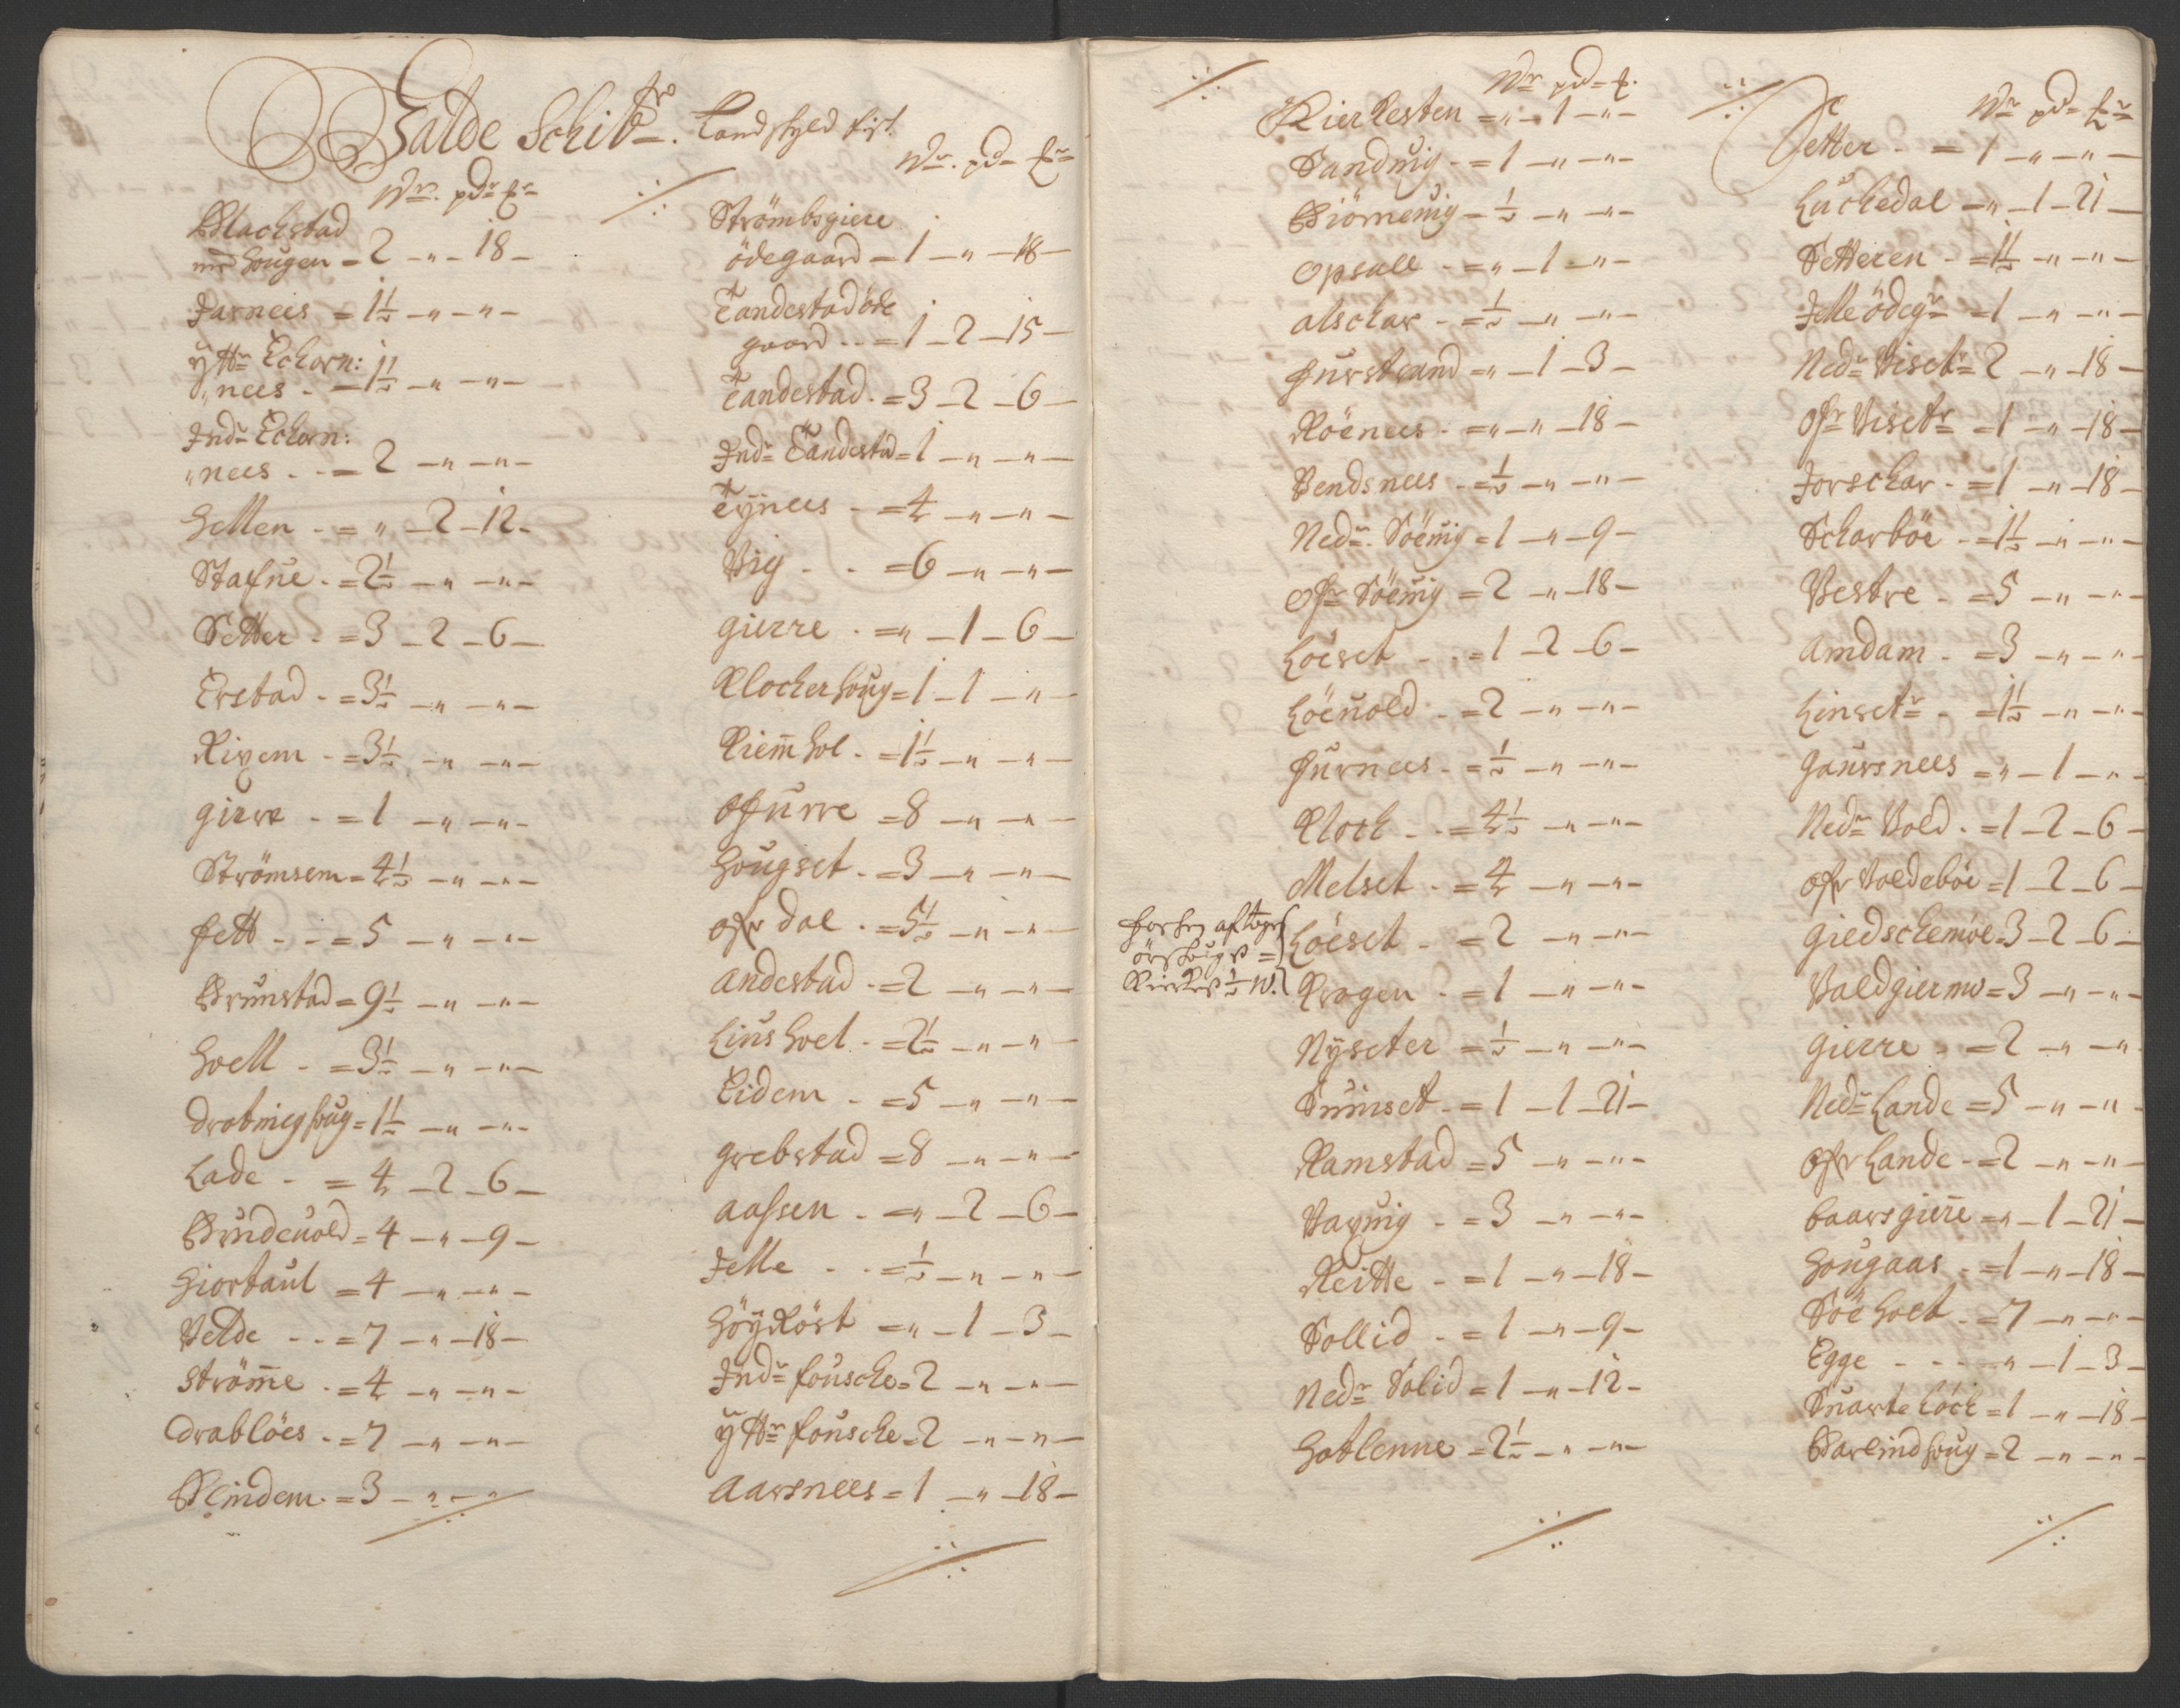 Walde Schibbr. Landskyld fisk
W. pd. £
Blachstad
med Hougen = 2 - " - 18 -
Jarnees = 1½ - " - " -
ytt. Echorn:
"nees - = 1½ - " - " -
Ind. Echorn:
"nees - = 2 - " - " -
Hellen - = " - 2 - 12 -
Stafne - = 2½ - " - " -
Setter - = 3 - 2 - 6 -
Erstad - = 3½ - " - " -
Rixem - = 3½ - " - " -
Gierre - = 1 - " - " -
Strömsem = 4½ - " - " -
Fett - - = 5 - " - " -
Brunstad = 9½ - " - " -
Hoell - = 3½ - " - " -
Drotninghoug = 1½ - " - " -
Lade - = 4 - 2 - 6 -
Brudeuold = 4 - " - 9 -
Hiortaul = 4 - " - " -
Velde - - = 7 - " - 18 -
Ströme - = 4 - " - " -
Drablöes - = 7 - " - " -
Blindem = 3 - " - " -
W. pd. £
Strömbsgiere
ödegaard = 1 - " - 18 -
Tandestad öde
gaard - - = 1 - 2 - 15 -
Tandestad - = 3 - 2 - 6 -
Ind. Tandestad = 1 - " - " -
Tÿnees - = 4 - " - " -
Vig - - = 6 - " - " -
Gierre - = " - 1 - 6 -
Klocherhoug = 1 - 1 - " -
Riemhol - = 1½ - " - " -
Ofurre = 8 - " - " -
Hougset - = 3 - " - " -
Ofr dal - = 5½ - " - " -
Andestad - = 2 - " - " -
Liushoel - = 2½ - " - " -
Eidem - = 5 - " - " -
Grebstad = 8 - " - " -
Aassen - = " - 2 - 6 -
Jelle - - = ½ - " - " -
Höÿköst = " - 1 - 3 -
Ind. Fousche = 2 - " - " -
ytt. Fousche = 2 - " - " -
Aarsnees = 1 - " - 18 -
W. pd. £.
Kierkesten = " - 1 - " -
Sanduig - = 1 - " - " -
Biörneuig - ½ - " - " -
Opsall - = " - 1 - " -
Alschar - = ½ - " - " -
Furstrand = " - 1 - 3 -
Röenees - = " - " - 18 -
Vendsnees - = ½ - " - " -
Ned. Söeuig = 1 - " - 9 -
Ofr Söeuig = 2 - " - 18 -
Löeset - - = 1 - 2 - 6 -
Löeuold - = 2 - " - " -
Furnees - = ½ - " - " -
Kloch - - = 4½ - " - " -
Melset - = 4 - " - " -
Löeset - = 2 - " - " -
Krogen - = 1 - " - " -
Nÿseter = ½ - " - " -
Suinset - = 1 - 1 - 21 -
Ramstad = 5 - " - " -
Vaxuig - = 3 - " - " -
Reitte - = 1 - " - 18 -
Sollid - = 1 - " - 9 -
Ned. Solid = 1 - " - 12 -
Hatlenne = 2½ - " - " -
W. pd. £
Setter - = 1 - " - " -
Luchedal = " - 1 - 21 -
Setteren - = 1½ - " - " -
Jelleödeg. = 1 - " - " -
Ned. Viset. = 2 - " - 18 -
Ofr Visetr = 1 - " - 18 -
Jorschar - = 1 - " - 18 -
Scharböe - = 1½ - " - " -
Vestre - = 5 - " - " -
Amdam - = 3 - " - " -
Linset. - = 1½ - " - " -
Gaursnees = " - 1 - " -
Ned. Vold - = 1 - 2 - 6 -
Ofr Voldeböe = 1 - 2 - 6 -
Giedschemoe = 3 - 2 - 6 -
Valdgiermo = 3 - " - " -
Gierre - = 2 - " - " -
Ned. Lande = 5 - " - " -
Ofr Lande - = 2 - " - " -
Baarsgiere = " - 1 - 21 -
Hougaas - = 1 - " - 18 -
Söeholt - = 7 - " - " -
Egge - - - " - 1 - 3 -
Suarteläch = 1 - " - 18 -
Barlindhoug = 2 - " - " -